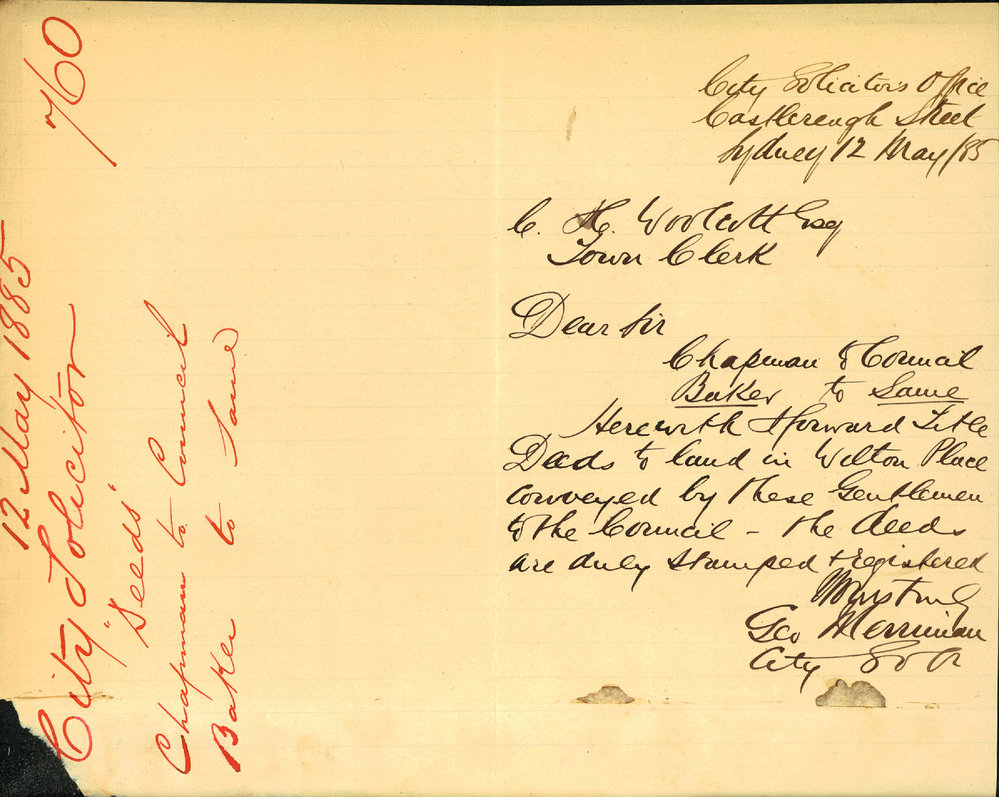 760
12 May 1885
City Solicitor
"Deeds"
Chapman to Council
Baker to Same
City Solicitor's Office
Castlereagh Street
Sydney 12 May /85
C. H. Woolcott Esq
Town Clerk
Dear Sir
Chapman to Council
Baker to Same
Herewith I forward Title
Deeds to land in Wilton Place
conveyed by these Gentlemen
to the Council - the deeds
are duly stamped & registered
Yours truly
Geo Merriman
City Solr